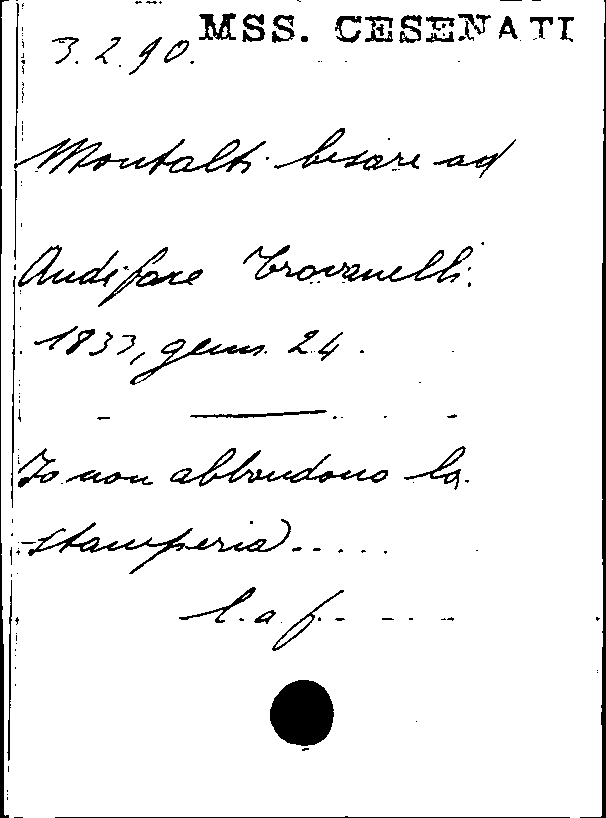 MSS. CESENATI
3.2.90.
Montalti Cesare ad
Audiface Trovanelli.
1833, genn. 24.
Io non abbandono la
stamperia.....
l. a f.